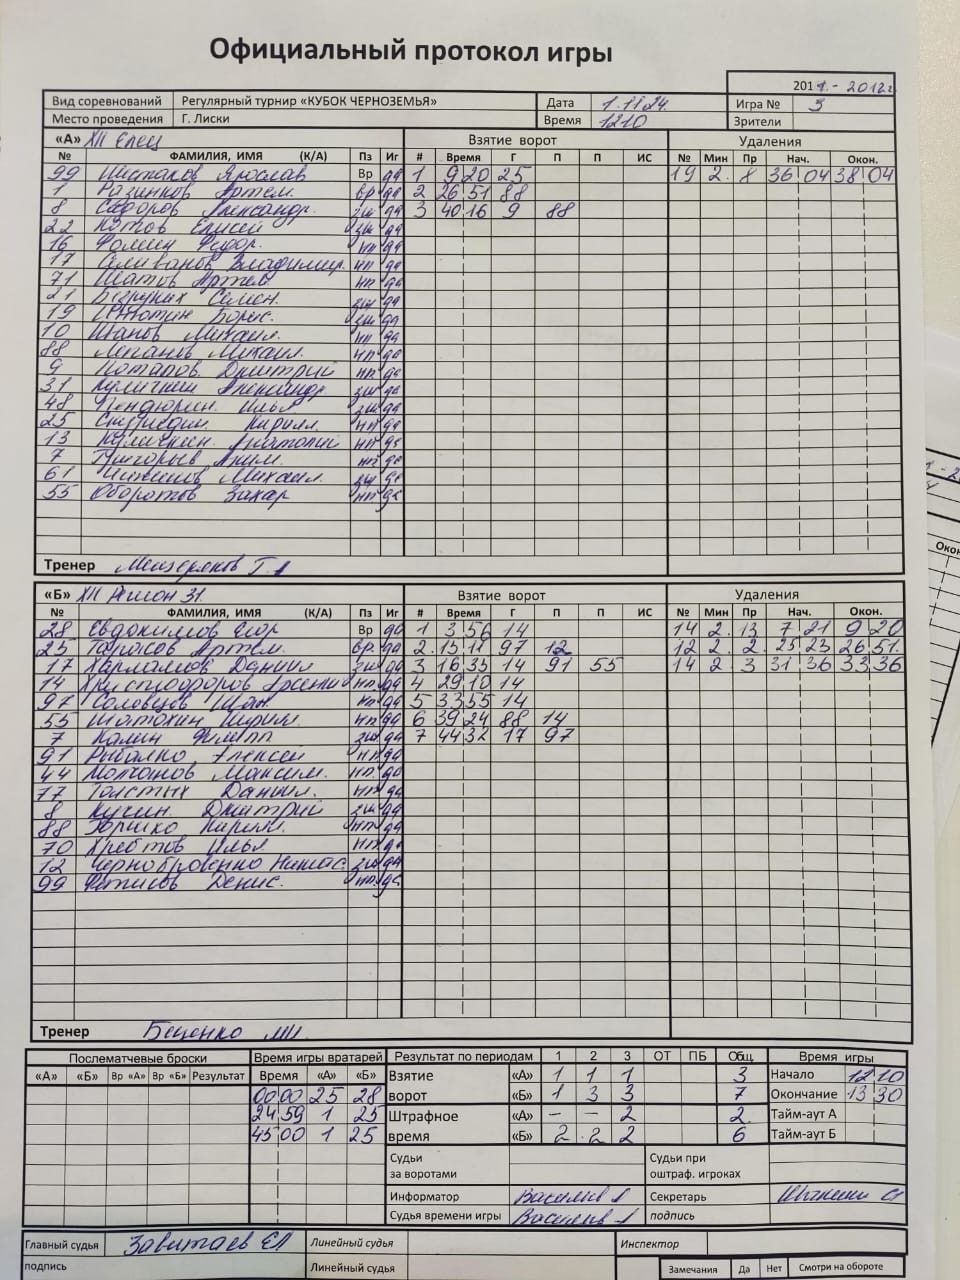 Официальный протокол игры
2011.- 2012г.
Вид соревнований Регулярный турнир «КУБОК ЧЕРНОЗЕМЬЯ» Дата 1.11.24. Игра № 3
Место проведения Г. Лиски Время 1210 Зрители
«А» ХК Елец Взятие ворот Удаления
№ ФАМИЛИЯ, ИМЯ (К/А) Пз Иг # Время Г П П ИС № Мин Пр Нач. Окон.
99 Шестаков Ярослав Вр да 1 9 20 25 19 2. 8 36 04 38 04
1 Разинков Артем. вр да 2 26 51 88
8 Сидоров Александр. зщ да 3 40 16 9 88
22 Котов Елисей зщ да
16 Фомин Федор. нп да
17 Селиванов Владимир. нп да
71 Шатов Артем. нп да
21 Безруких Семен. зщ да
19 Борис. зщ да
10 Михаил. нп да
88 Михаил. нп да
9 Потапов. Дмитрий нп да
31 Куличкин Александр зщ да
48 Илья зщ да
25 Кирилл. нп да
13 Куличкин. Анатолий нп да
7 Григорьев Аким. нп да
61 Михаил. зщ да
55 Оборотов Захар нп да
Тренер Мещеряков Г.А
«Б» ХК Регион 31. Взятие ворот Удаления
№ ФАМИЛИЯ, ИМЯ (К/А) Пз Иг # Время Г П П ИС № Мин Пр Нач. Окон.
28 Евдокимов Егор Вр да 1 3 56 14 14 2. 13 7 21 9 20
25 Тарасов Артем. вр. да 2. 15 11 97 12 12 2. 2. 25 23 26 51.
17 Харламов Даниил зщ да 3 16 35 14 91 55 14 2 3 31 36 33 36
14 Христофоров Арсений нп. да 4 29 10 14
97 Соловцов Иван нп да 5 33 55 14
55 Шатохин Кирилл нп да 6 39 24 88 14
7 Калин Филипп зщ да 7 44 32 17 97
91 Рыбалко Алексей нп да
44 Молчанов Максим. нп. да
77 Толстых Даниил. нп да
8 Кучин. Дмитрий зщ да
88 Кирилл. нп да
70 Хребтов Илья нп да
12 Чернобровенко зщ да
99 Фетисов Денис. нп. да
Тренер
Послематчевые броски Время игры вратарей Результат по периодам 1 2 3 ОТ ПБ Общ. Время игры
«А» «Б» Вр «А» Вр «Б» Результат Время «А» «Б» Взятие «А» 1 1 1 3 Начало 12 10
00 00 25 28 ворот «Б» 1 3 3 7 Окончание 13 30
24 59 1 25 Штрафное «А» – – 2 2. Тайм-аут А
45 00 1 25 время «Б» 2 2 2 6 Тайм-аут Б
Судьи за воротами Судьи при оштраф. игроках
Информатор Васильев А Секретарь
Судья времени игры Васильев А подпись
Главный судья Линейный судья Инспектор
подпись Линейный судья Замечания Да Нет Смотри на обороте
Окон